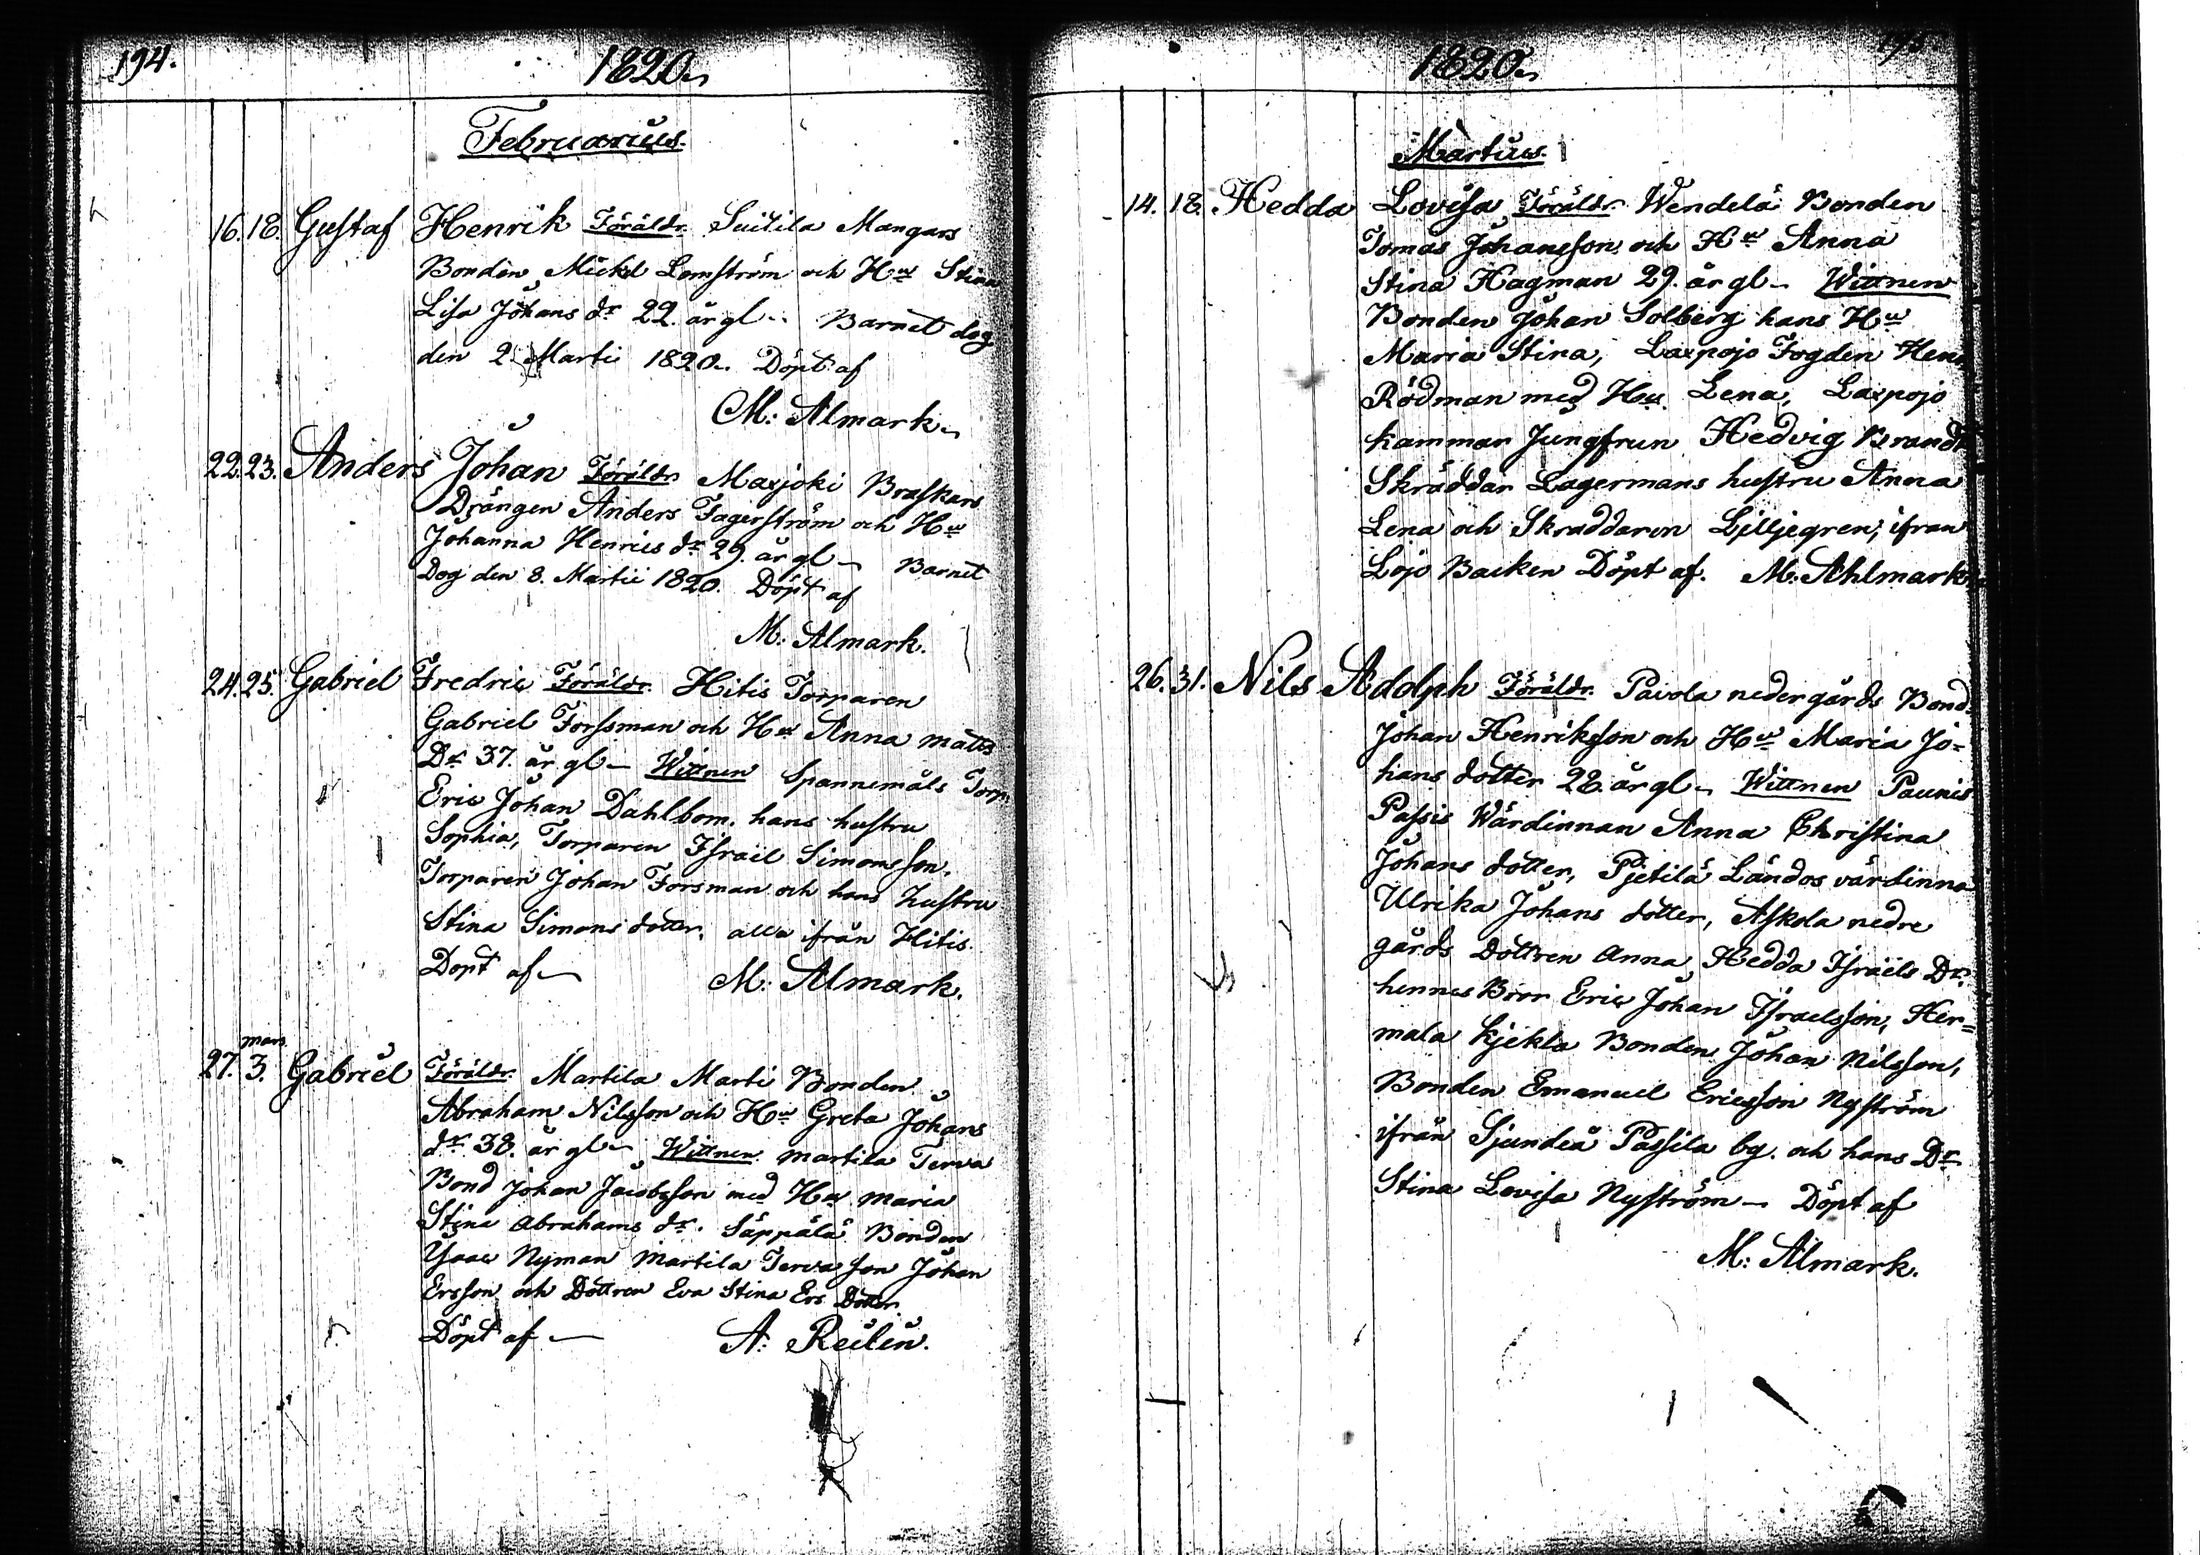 194.
1820.
Februarius.
16. 18. Gustaf Henrik Föräldr. Suitila Mangars
Bonden Mickel Lemström och Hu Stina
Lisa Johans dr 22. år gl. Barnet dog
den 2. Marti 1820. Döpt af
M: Almark.
22. 23. Anders Johan Föräldr. Maxjoki Braskars
Drängen Anders Fagerström och Hu
Johanna Henrics dr 29. år gl Barnet
Dog den 8. Martii 1820. Döpt af
M: Almark.
24. 25. Gabriel Fredric Föräldr. Hitis Torparen
Gabriel Forssman och Hu Anna matts
Dr 37. år gl Wittnen Spannemåls Torp.
Eric Johan Dahlbom. hans hustru
Sophia, Torparen Israel Simonsson,
Torparen Johan Forsman och hans hustru
Stina Simons dotter, alla ifrån Hitis
Dopt af M: Almark.
mars
27. 3. Gabriel Föräldr. Martila Marti Bonden
Abraham Nilsson och Hu Greta Johans
dr 38. år gl Wittnen martila Terva
Bond Johan Jacobsson med Hu maria
Stina Abrahams dr. Säppälä Bonden
Ysaac Nyman Martila Terva son Johan
Ersson och Dottren Eva Stina Ers Dotter
Döpt af A: Reilin.
195
1820.
Martius.
14. 18. Hedda Lovisa Föräldr. Wendelä Bonden
Tomas Johansson och Hu Anna
Stina Hagman 29. år gl Wittnen
Bonden Johan Solberg hans Hu
Maria Stina, Laxpojo Fogden Henr
Rödman med Hu Lena, Laxpojo
kammar Jungfrun Hedvig Brandt
Skräddar Lagermans hustru Anna
Lena och Skraddaren Liljegren, ifran
Lojo Backen Döpt af. M: Ahlmark.
26. 31. Nils Adolph Föräldr. Paivola nedergårds Bond.
Johan Henriksson och Hu Maria Jo=
hans dotter 28. år gl Wittnen Paunis
Passis Wärdinnan Anna Christina
Johans dotter, Pjetilä Ländos värdinna
Ulrika Johans dotter, Askola nedre
gårds Dottren Anna Hedda Israels Dr.
hennes Bror Eric Johan Israelsson, Her=
mala Kjekla Bonden Johan Nilsson,
Bonden Emanuel Ericsson Nyström
ifrån Sjundeå Passila by. och hans Dr
Stina Lovisa Nyström Döpt af
M: Almark.